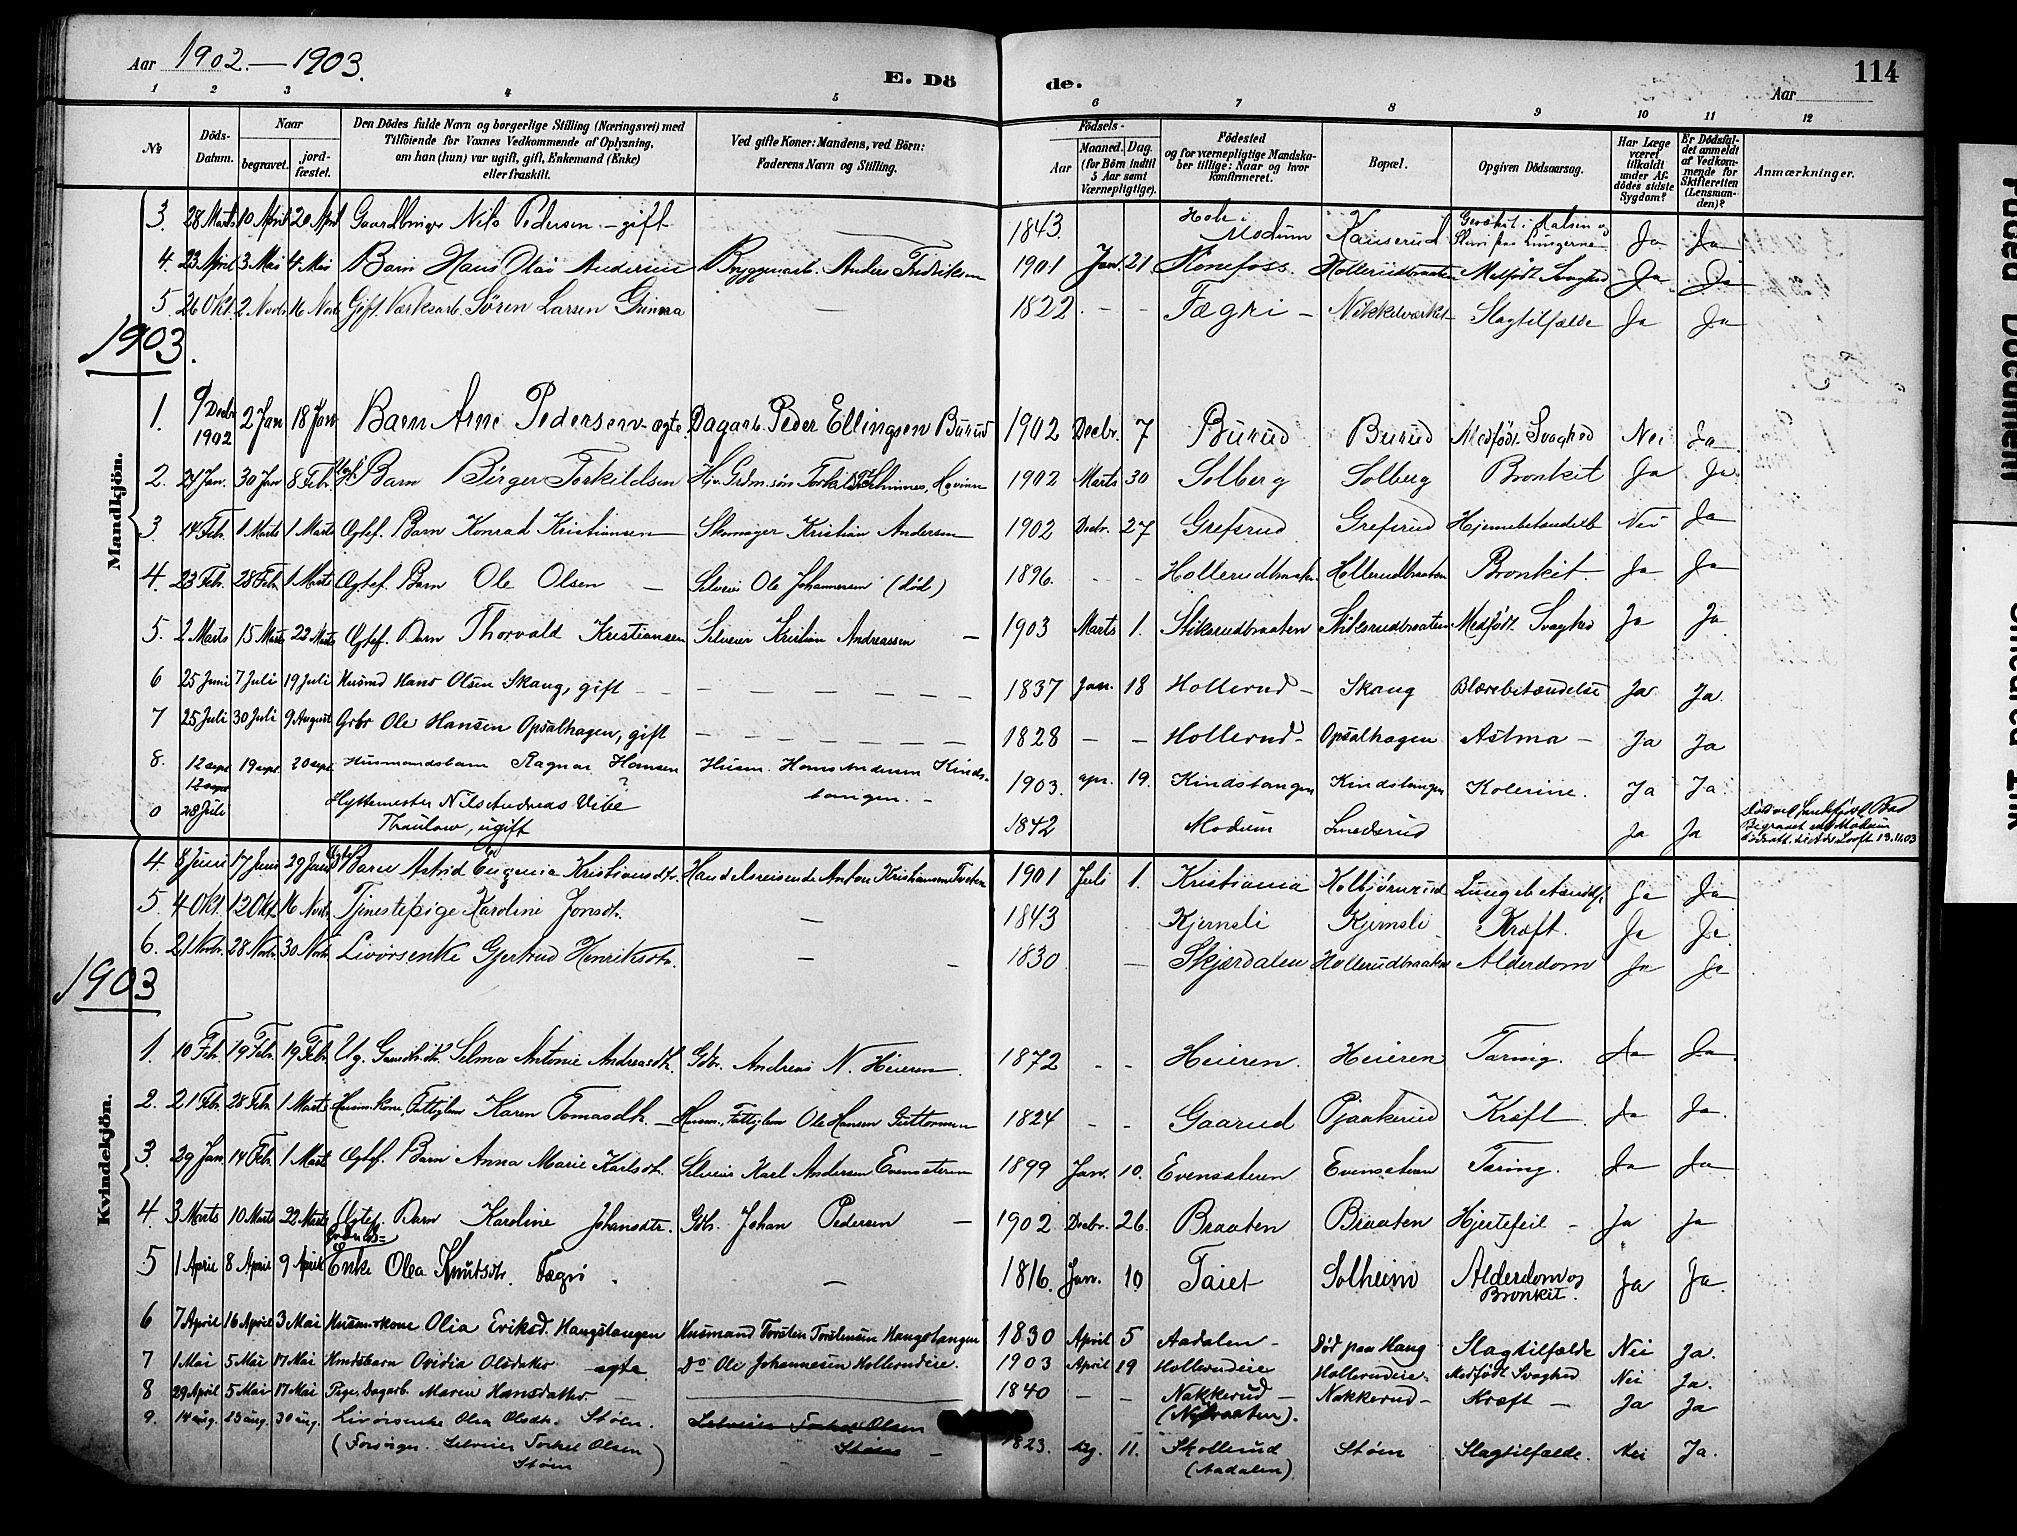 Aar 1902.—1903.
E. Döde.
Aar
114
1 2 3 4 5 6 7 8 9 10 11 12
№
Döds-Datum.
Naar
begravet.
jord-fæstet.
Den Dödes fulde Navn og borgerlige Stilling (Næringsvei) med
Tilföiende for Voxnes Vedkommende af Oplysning,
om han (hun) var ugift, gift, Enkemand (Enke)
eller fraskilt.
Ved gifte Koner: Mandens, ved Börn:
Faderens Navn og Stilling.
Födsels-
Aar
Maaned. Dag.
(for Börn indtil 5 Aar samt Værnepligtige).
Födested
og for værnepligtige Mandska-
ber tillige: Naar og hvor
konfirmeret.
Bopæl.
Opgiven Dödsaarsag.
Har Læge været tilkaldt under Af-dödes sidste Sygdom?
Er Dödsfal-det anmeldt af Vedkom-mende for Skifteretten (Lensman-den)?
Anmærkninger.
Mandkjön.
3. 28 Marts 10 April 20 April Gaardbruger Nils Pedersen – gift 1843. Modum Ja Ja
4. 23 April 3 Mai 4 Mai Barn Hans Olai Andersen Anders Fredriksen 1901 Jan. 21 Hønefoss Hollerudbraaten Medfødt Svaghed Ja Ja
5. 26 Okt. 2 Novbr 16 Novbr Gift Værksarb. Søren Larsen 1822 – – Fægri – Nikkelværket Slagtilfælde Ja Ja
1903.
1. 9 Decbr 1902 2 Jan 18 Jan Barn Arne Pedersen – ægte Dagarb. Peder Ellingsen Burud 1902 Decbr. 7 Burud Burud Medfødt Svaghed Nei Ja
2. 24 Jan. 30 Jan 8 Febr. Barn Birger Torkildsen 1902 Marts 30 Solberg Solberg Bronkit Ja Ja
3. 14 Febr. 1 Marts 1 Marts Ægtef. Barn Konrad Kristiansen Skomager Kristian Andersen 1902 Decbr. 27 Grefsrud Grefsrud Nei Ja
4. 23 Febr. 28 Febr. 1 Marts Ægtef. Barn Ole Olsen – Selveier Ole Johannesen (død) 1896. – – Hollerudbraaten Hollerudbraaten Bronkit. Ja Ja
5. 2 Marts 15 Marts 22 Marts Ægtef. Barn Thorvald Kristiansen Selveier Kristian Andreassen – 1903 Marts 1. Stiksrudbraaten Stiksrudbraaten Medfødt Svaghed Ja Ja
6 25 Juni 7 Juli 19 Juli Husmd Hans Olsen Skaug, gift 1837 Jan. 18 Hollerud – Skaug Blærebetændelse Ja Ja
7 25 Juli 30 Juli 9 August Grbr Ole Hansen Opsalhagen, gift 1828 – – Hollerud – Opsalhagen Astma – Ja Ja
8. 12 sept 19 sept. 20 sept. Husmandsbarn Ragnar Hansen Husm. Hans Andersen Kinds-
tangen. – 1903. apr. 19. Kindstangen Kindstangen Kolerine. Ja Ja.
0 28 Juli Hyttemester Nils Andreas Vibe
Thaulow, ugift 1842 Modum Smederud Ja Ja
Død ved Sandefjord Bad
Begravet ved Modum
Kvindekjön.
4. 8 Juni 17 Juni 29 Juni Barn Astrid Eugenia Kristiansdtr. Handelsreisende Anton Kristiansen 1901 Juli 1. Kristiania Kolbjørnrud Ja Ja
5. 4 Okt. 12 Okt. 16 Novbr. Tjenestepige Karoline Jonsdtr. – 1843 Kjernsli Kjernsli Kræft. Ja Ja.
6. 21 Novbr. 28 Novbr. 30 Novbr. Livörsenke Gjertrud Henriksdtr. – 1830 Skjærdalen Hollerudbraaten Alderdom Ja Ja
1903
1. 10 Febr. 19 Febr. 19 Febr. Ug. Selma Antonie Andreasdtr. Gbr. Andreas N. Heieren. 1872 – – Heieren Heieren Tæring. Ja Ja
2. 21 Febr. 28 Febr. 1 Marts Husm.kone, Fattiglem Karen Tomasdtr. – Husm., Fattiglem Ole Hansen 1824 – – Gaarud Pjaakerud Kræft. Ja Ja.
3. 29 Jan 14 Febr. 1 Marts Ægtef. Barn Anna Marie Karlsdtr. Selveier Karl Andersen Evensæteren 1899 Jan. 10. Evensæteren Evensæteren Tæring. Ja Ja
4. 3 Marts 10 Marts 22 Marts Ægtef. Barn Karoline Johansdtr. Gbr. Johan Pedersen – 1902 Decbr. 26. Braaten Braaten Hjertefeil – Ja Ja
5 1 April 8 April 9 April Enke Olea Knutsdtr. Fægri – 1816. Jan. 10 Taiet Solheim Alderdom og
Bronkit. Ja Ja.
6 7 April 16 April 3 Mai Husm.kone Olia Eriksd. Haugstangen Husmand Torsten Torstensen Haugstangen 1830 April 5 Aadalen – Død paa Haug Slagtilfælde Nei Ja.
7 1 Mai 5 Mai 17 Mai Husmdsbarn Ovidia Olsdatter ægte Do Ole Johannesen Hollerudeie. 1903 April 19 Hollerudeie Hollerudeie. Medfødt Svaghed Nei Ja.
8 29 April 5 Mai 17 Mai Pige, Dagarb. Maren Hansdatter 1840 – – Nakkerud –
(Nybraaten). Nakkerud – Kræft – Ja Ja
9. 14 aug. 23 aug. 30 aug. Livörsenke Olea Olsdtr. Støen.
(Forsörger. Selveier Torkel Olsen
Støen) Selveier Torkel Olsen
Støen – 1823. 11. Skollerud
(Aadalen). Støen Slagtilfælde. Nei Ja.
Faded Document